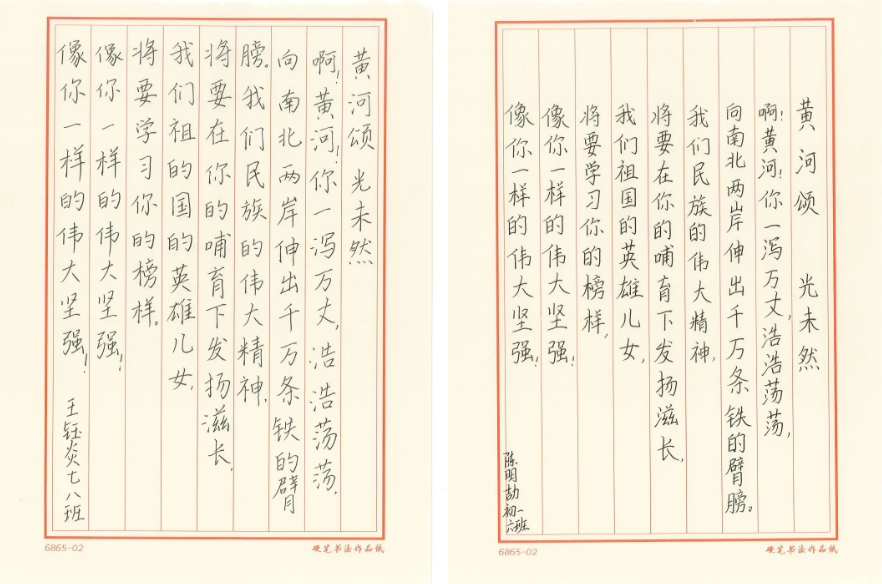 黄河颂 光未然
啊!黄河!你一泻万丈,浩浩荡荡,
向南北两岸伸出千万条铁的臂
膀。我们民族的伟大精神,
将要在你的哺育下发扬滋长,
我们祖国的英雄儿女,
将要学习你的榜样。
像你一样的伟大坚强!
像你一样的伟大坚强!
王钰炎七八班
6865-02
硬笔书法作品纸
黄河颂 光未然
啊!黄河!你一泻万丈,浩浩荡荡,
向南北两岸伸出千万条铁的臂膀。
我们民族的伟大精神,
将要在你的哺育下发扬滋长,
我们祖国的英雄儿女,
将要学习你的榜样,
像你一样的伟大坚强!
像你一样的伟大坚强!
陈明劼初一
六班
6865-02
硬笔书法作品纸